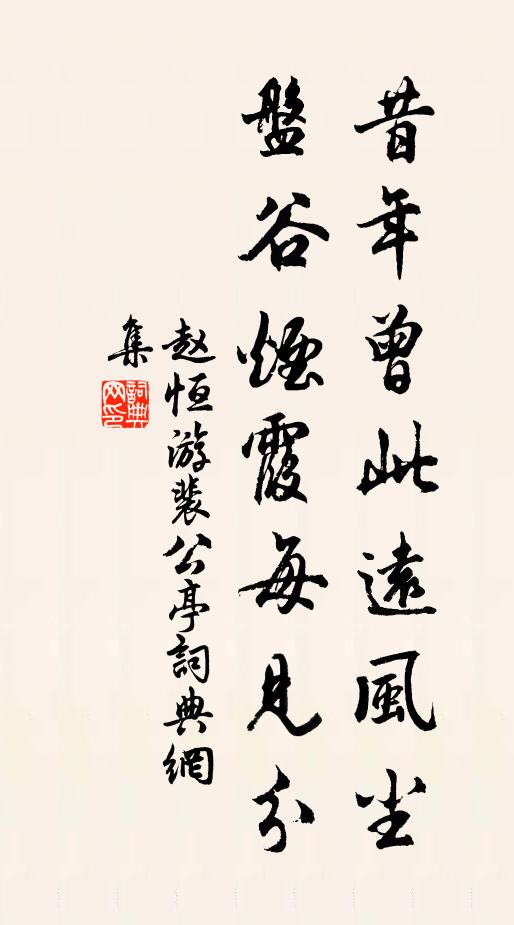 昔年曾此遠風塵
盤谷煙霞每見分
赵恒游裴公亭詞典網
集
詞典網印